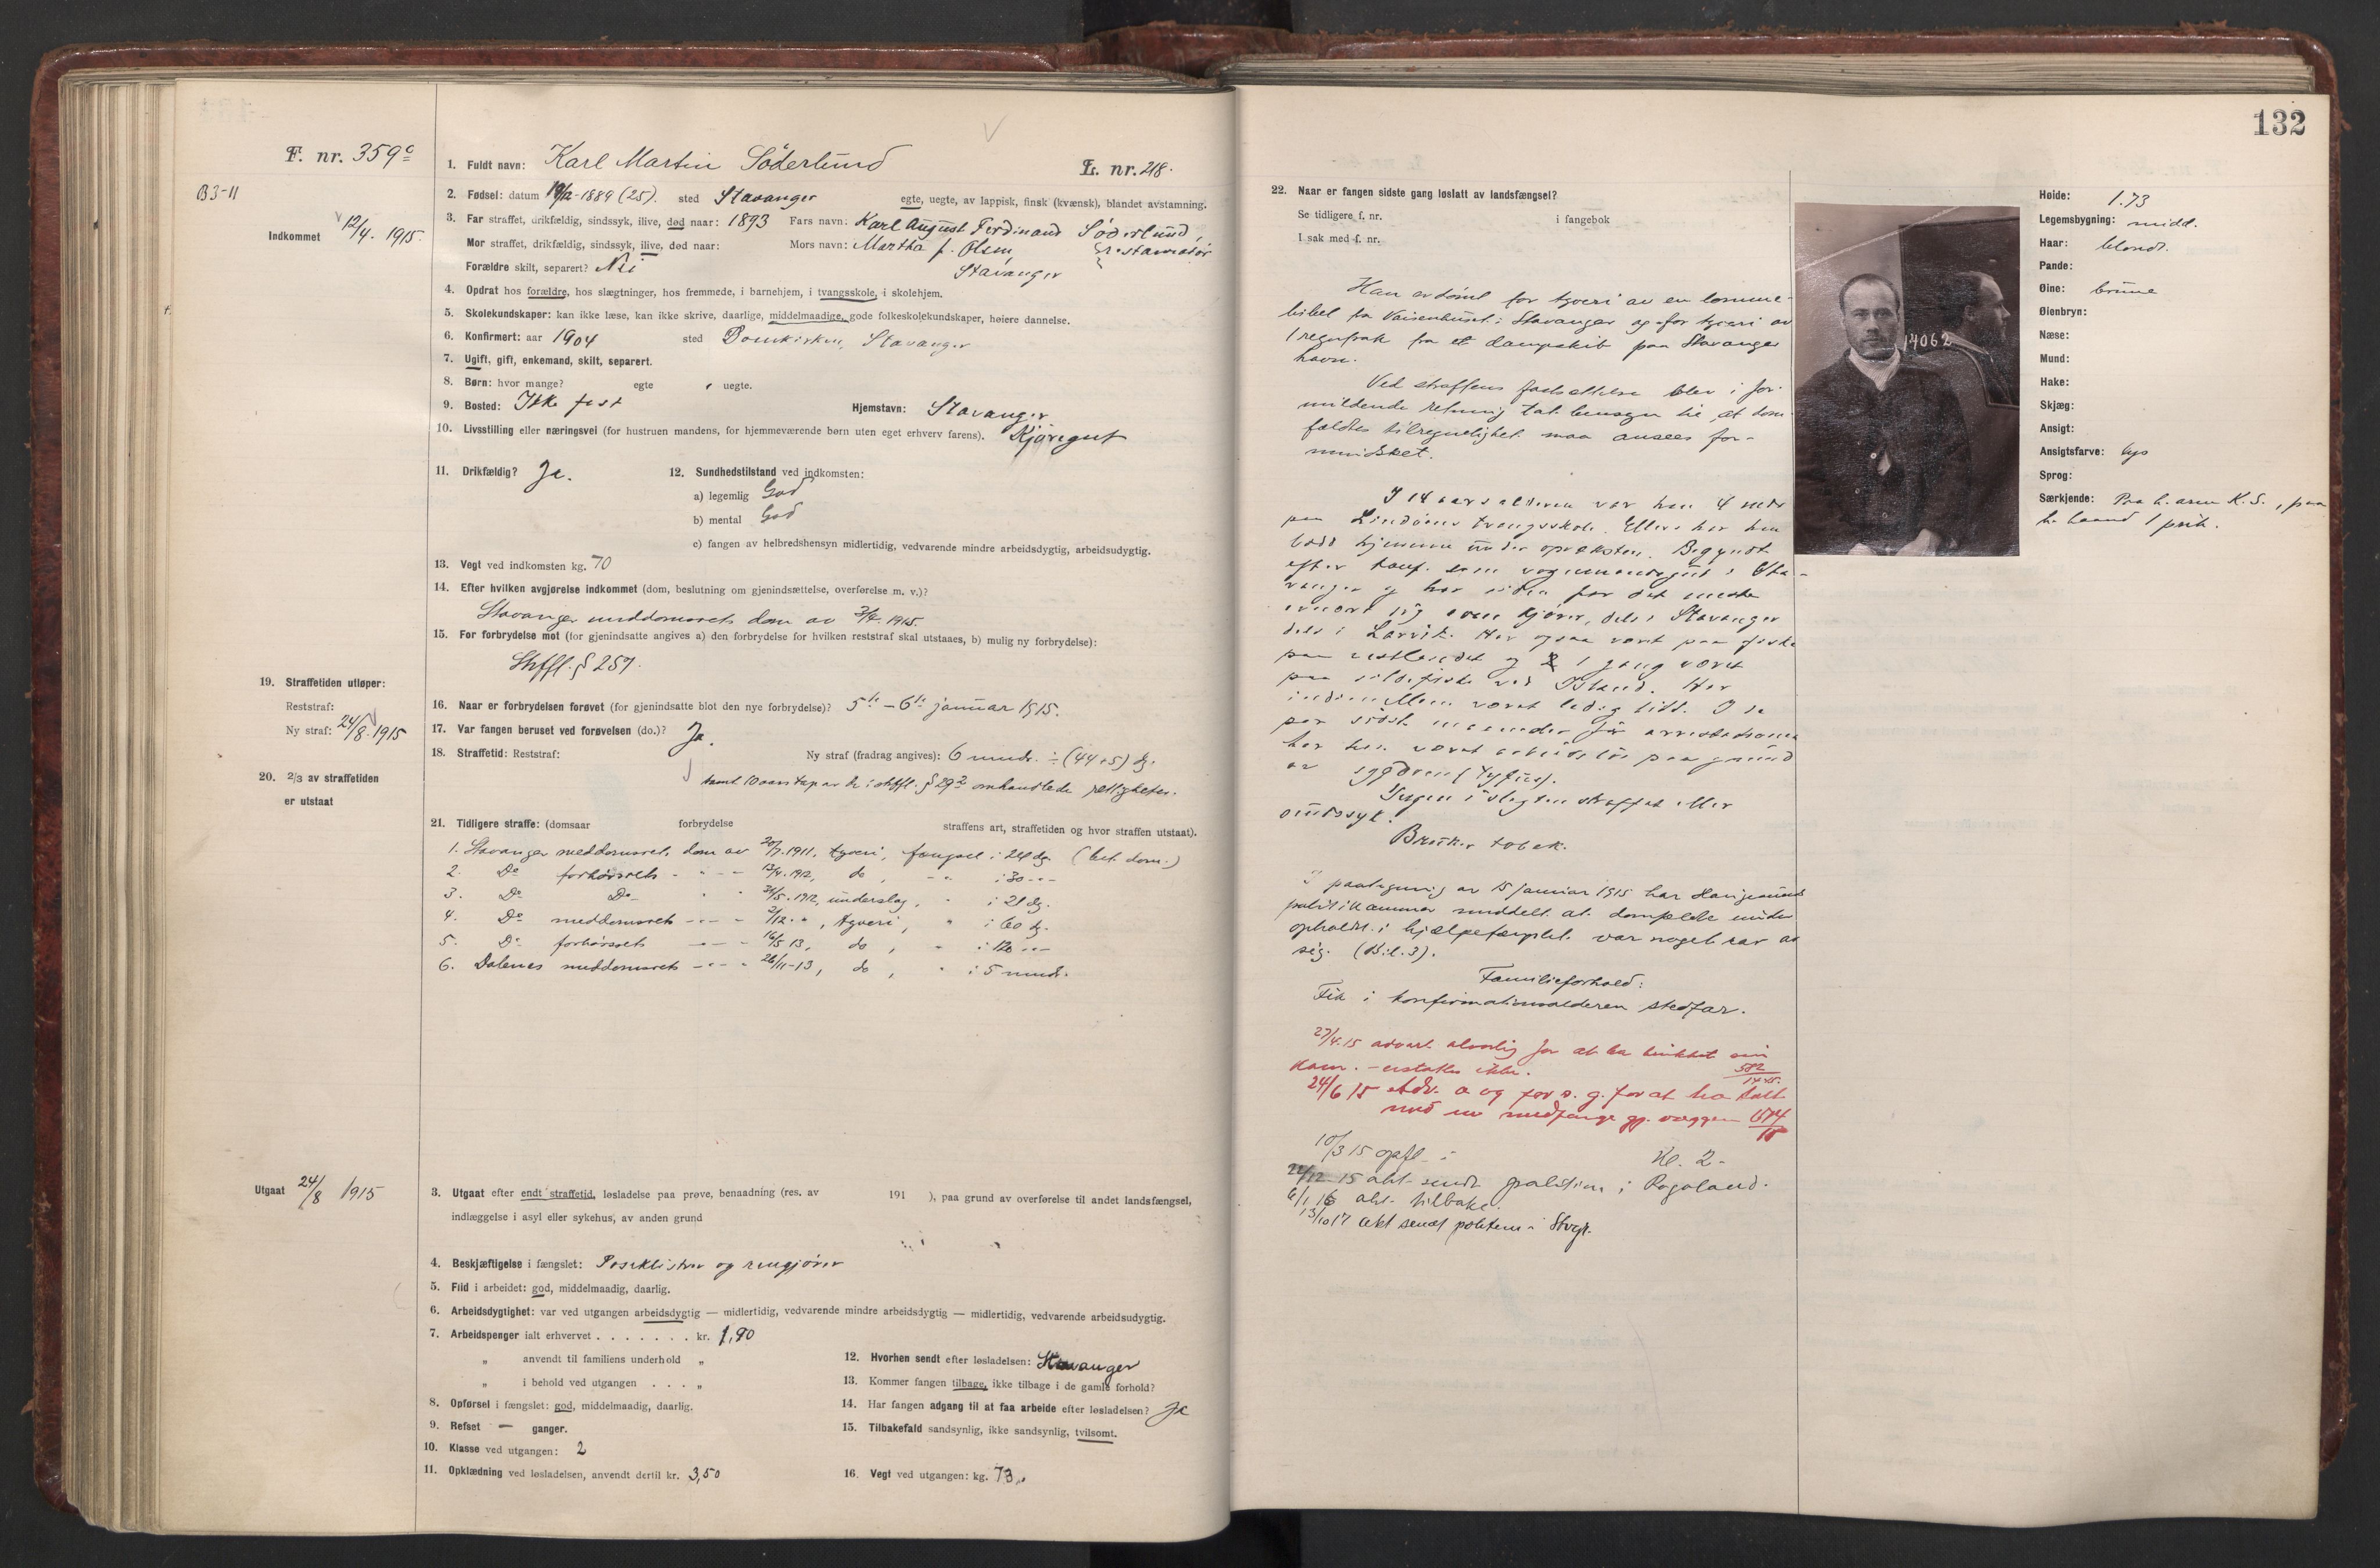 F. nr. 359c
B3-11
Indkommet 12/4. 1915.
1. Fuldt navn: Karl Martin Söderlund
L. nr. 218.
2. Fødsel: datum 19/2-1889 (25). sted Stavanger egte, uegte, av lappisk, finsk (kvænsk), blandet avstamning.
3. Far straffet, drikfældig, sindssyk, ilive, død naar: 1893 Fars navn: Karl August Ferdinand Söderlund, restauratör
Mor straffet, drikfældig, sindssyk, ilive, død naar: Mors navn: Martha f. Olsen, Stavanger
Forældre skilt, separert? Nei
4. Opdrat hos forældre, hos slægtninger, hos fremmede, i barnehjem, i tvangsskole, i skolehjem.
5. Skolekundskaper: kan ikke læse, kan ikke skrive, daarlige, middelmaadige, gode folkeskolekundskaper, høiere dannelse.
6. Konfirmert: aar 1904 sted Domkirken, Stavanger
7. Ugift, gift, enkemand, skilt, separert.
8. Børn: hvor mange? egte uegte.
9. Bosted: Ikke fast Hjemstavn: Stavanger
10. Livsstilling eller næringsvei (for hustruen mandens, for hjemmeværende børn uten eget erhverv farens). Kjöregut
11. Drikfældig? Ja.
12. Sundhedstilstand ved indkomsten:
a) legemlig God
b) mental God
c) fangen av helbredshensyn midlertidig, vedvarende mindre arbeidsdygtig, arbeidsudygtig.
13. Vegt ved indkomsten kg. 70
14. Efter hvilken avgjørelse indkommet (dom, beslutning om gjenindsættelse, overførelse m. v.)?
Stavanger meddomsrets dom av 3/4. 1915.
15. For forbrydelse mot (for gjenindsatte angives a) den forbrydelse for hvilken reststraf skal utstaaes, b) mulig ny forbrydelse):
Strffl. § 257.
16. Naar er forbrydelsen forøvet (for gjenindsatte blot den nye forbrydelse)? 5te – 6te januar 1915.
17. Var fangen beruset ved forøvelsen (do.)? Ja.
18. Straffetid: Reststraf: Ny straf (fradrag angives): 6 mndr. ÷ (44+5) dg.
samt 10 aars tap av de i strffl. § 29 2 omhandlede rettigheter.
19. Straffetiden utløper:
Reststraf:
Ny straf: 24/8. 1915
20. 2/3 av straffetiden
er utstaat
21. Tidligere straffe: (domsaar forbrydelse straffens art, straffetiden og hvor straffen utstaat).
1. Stavanger meddomsrets dom av 20/7. 1911, tyveri, fængsel i 24 dg. (bet. dom.)
2. Do forhörsrets - " - - 12/4. 1912, do, - " i 30 - "-
3. Do Do - " " 31/5. 1912, underslag, " i 21 dg.
4. Do meddomsrets - - - - 2/12. " , tyveri, " i 60 dg.
5. Do forhörsrets - - - 16/5 13, do, " i 120 - "-
6. Dalenes meddomsrets - - - - 26/11-13, do, " i 5 mndr.
Utgaat 24/8 1915
3. Utgaat efter endt straffetid, løsladelse paa prøve, benaadning (res. av 191 ), paa grund av overførelse til andet landsfængsel,
indlæggelse i asyl eller sykehus, av anden grund
4. Beskjæftigelse i fængslet: Poseklistrer og rengjörer
5. Flid i arbeidet: god, middelmaadig, daarlig.
6. Arbeidsdygtighet: var ved utgangen arbeidsdygtig — midlertidig, vedvarende mindre arbeidsdygtig — midlertidig, vedvarende arbeidsudygtig.
7. Arbeidspenger ialt erhvervet . . . . . . . kr. 1,90
„ anvendt til familiens underhold „
„ i behold ved utgangen . . . „
8. Opførsel i fængslet: god, middelmaadig, daarlig.
9. Refset — ganger.
10. Klasse ved utgangen: 2
11. Opklædning ved løsladelsen, anvendt dertil kr. 3,50
12. Hvorhen sendt efter løsladelsen: Stavanger
13. Kommer fangen tilbage, ikke tilbage i de gamle forhold?
14. Har fangen adgang til at faa arbeide efter løsladelsen? Ja
15. Tilbakefald sandsynlig, ikke sandsynlig, tvilsomt.
16. Vegt ved utgangen: kg. 73,
132
22. Naar er fangen sidste gang løslatt av landsfængsel?
Se tidligere f. nr. i fangebok
I sak med f. nr.
Han er dömt for tyveri av en lomme-
bibel fra Vaisenhuset i Stavanger og for tyveri av
1 regnfrak fra et dampskib paa Stavanger
havn.
Ved straffens fastsættelse blev i for-
mildende retning tat hensyn til at dom-
fældtes tilregnelighet maa ansees for-
mindsket.
I 14 aars alderen var han 4 mdr
paa Lindöens tvangsskole. Ellers har han
bodd hjemme under opvæksten. Begyndt
efter konf. som vognmandsgut i Sta-
vanger og har siden for det meste
ernært sig som kjörer, dels i Stavanger
dels i Larvik. Har ogsaa været paa fiske
paa vestlandet og 1 gang været
paa sildefiske ved Island. Har
indimellem været ledig tildt. I de
par sidste maaneder för arrestationen
har han været arbeidslös paa grund
av sygdom (Tyfus).
Ingen i slegten straffet eller
sindssyk.
Bruker tobak.
I paategning av 15 januar 1915 har Haugesunds
politikammer meddelt at domfældte under
opholdet i hjælpefængslet var noget rar av
sig. (Bil. 3).
Familieforhold:
Fik i konfirmationsalderen stedfar.
27/4.15 advart alvorlig for at ha brukket sin
kam. – erstattes ikke. 582/14-15.
24/6 15 Adv. a og for s. g. for at ha talt
med en medfange gj. væggen 1514/15
10/3 15 opfl. i Kl. 2 -
22/12 15 akt sendt politim. i Rogaland.
6/1 16 akt tilbake.
13/10 17 akt sendt politem. i Stvgr.
14062
Høide: 1.73
Legemsbygning: midd.
Haar: blondt.
Pande:
Øine: brune
Øienbryn:
Næse:
Mund:
Hake:
Skjæg:
Ansigt:
Ansigtsfarve: lys
Sprog:
Særkjende: Paa h. arm K. S., paa
h. haand 1 prik.